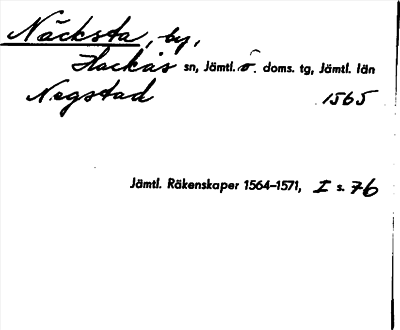 Näcksta, by,
Hackås sn, Jämtl. ö. doms. tg, Jämtl. län
Negstad 1565
Jämtl. Räkenskaper 1564–1571, I s. 76